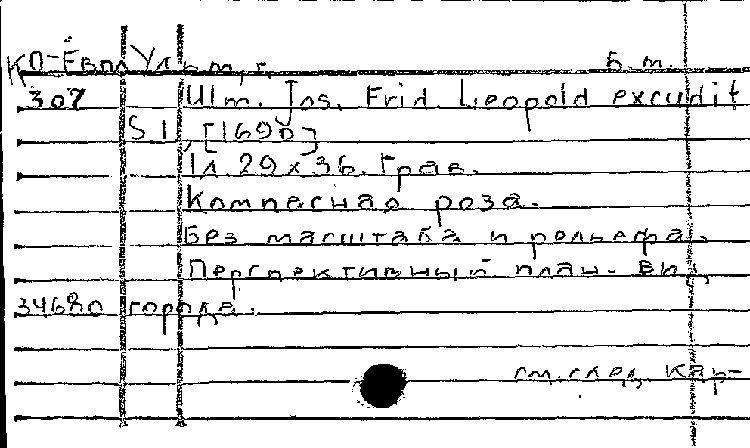 КП-Евпл Ульм, г. Б.м.
307 Ulm. Jos. Frid. Leopold excudit
S.l., [1690]
1л. 29x36. Грав.
Компасная роза.
Без масштаба и рельефа.
Перспективный план. Вид
34680 города.
см. след. кар-